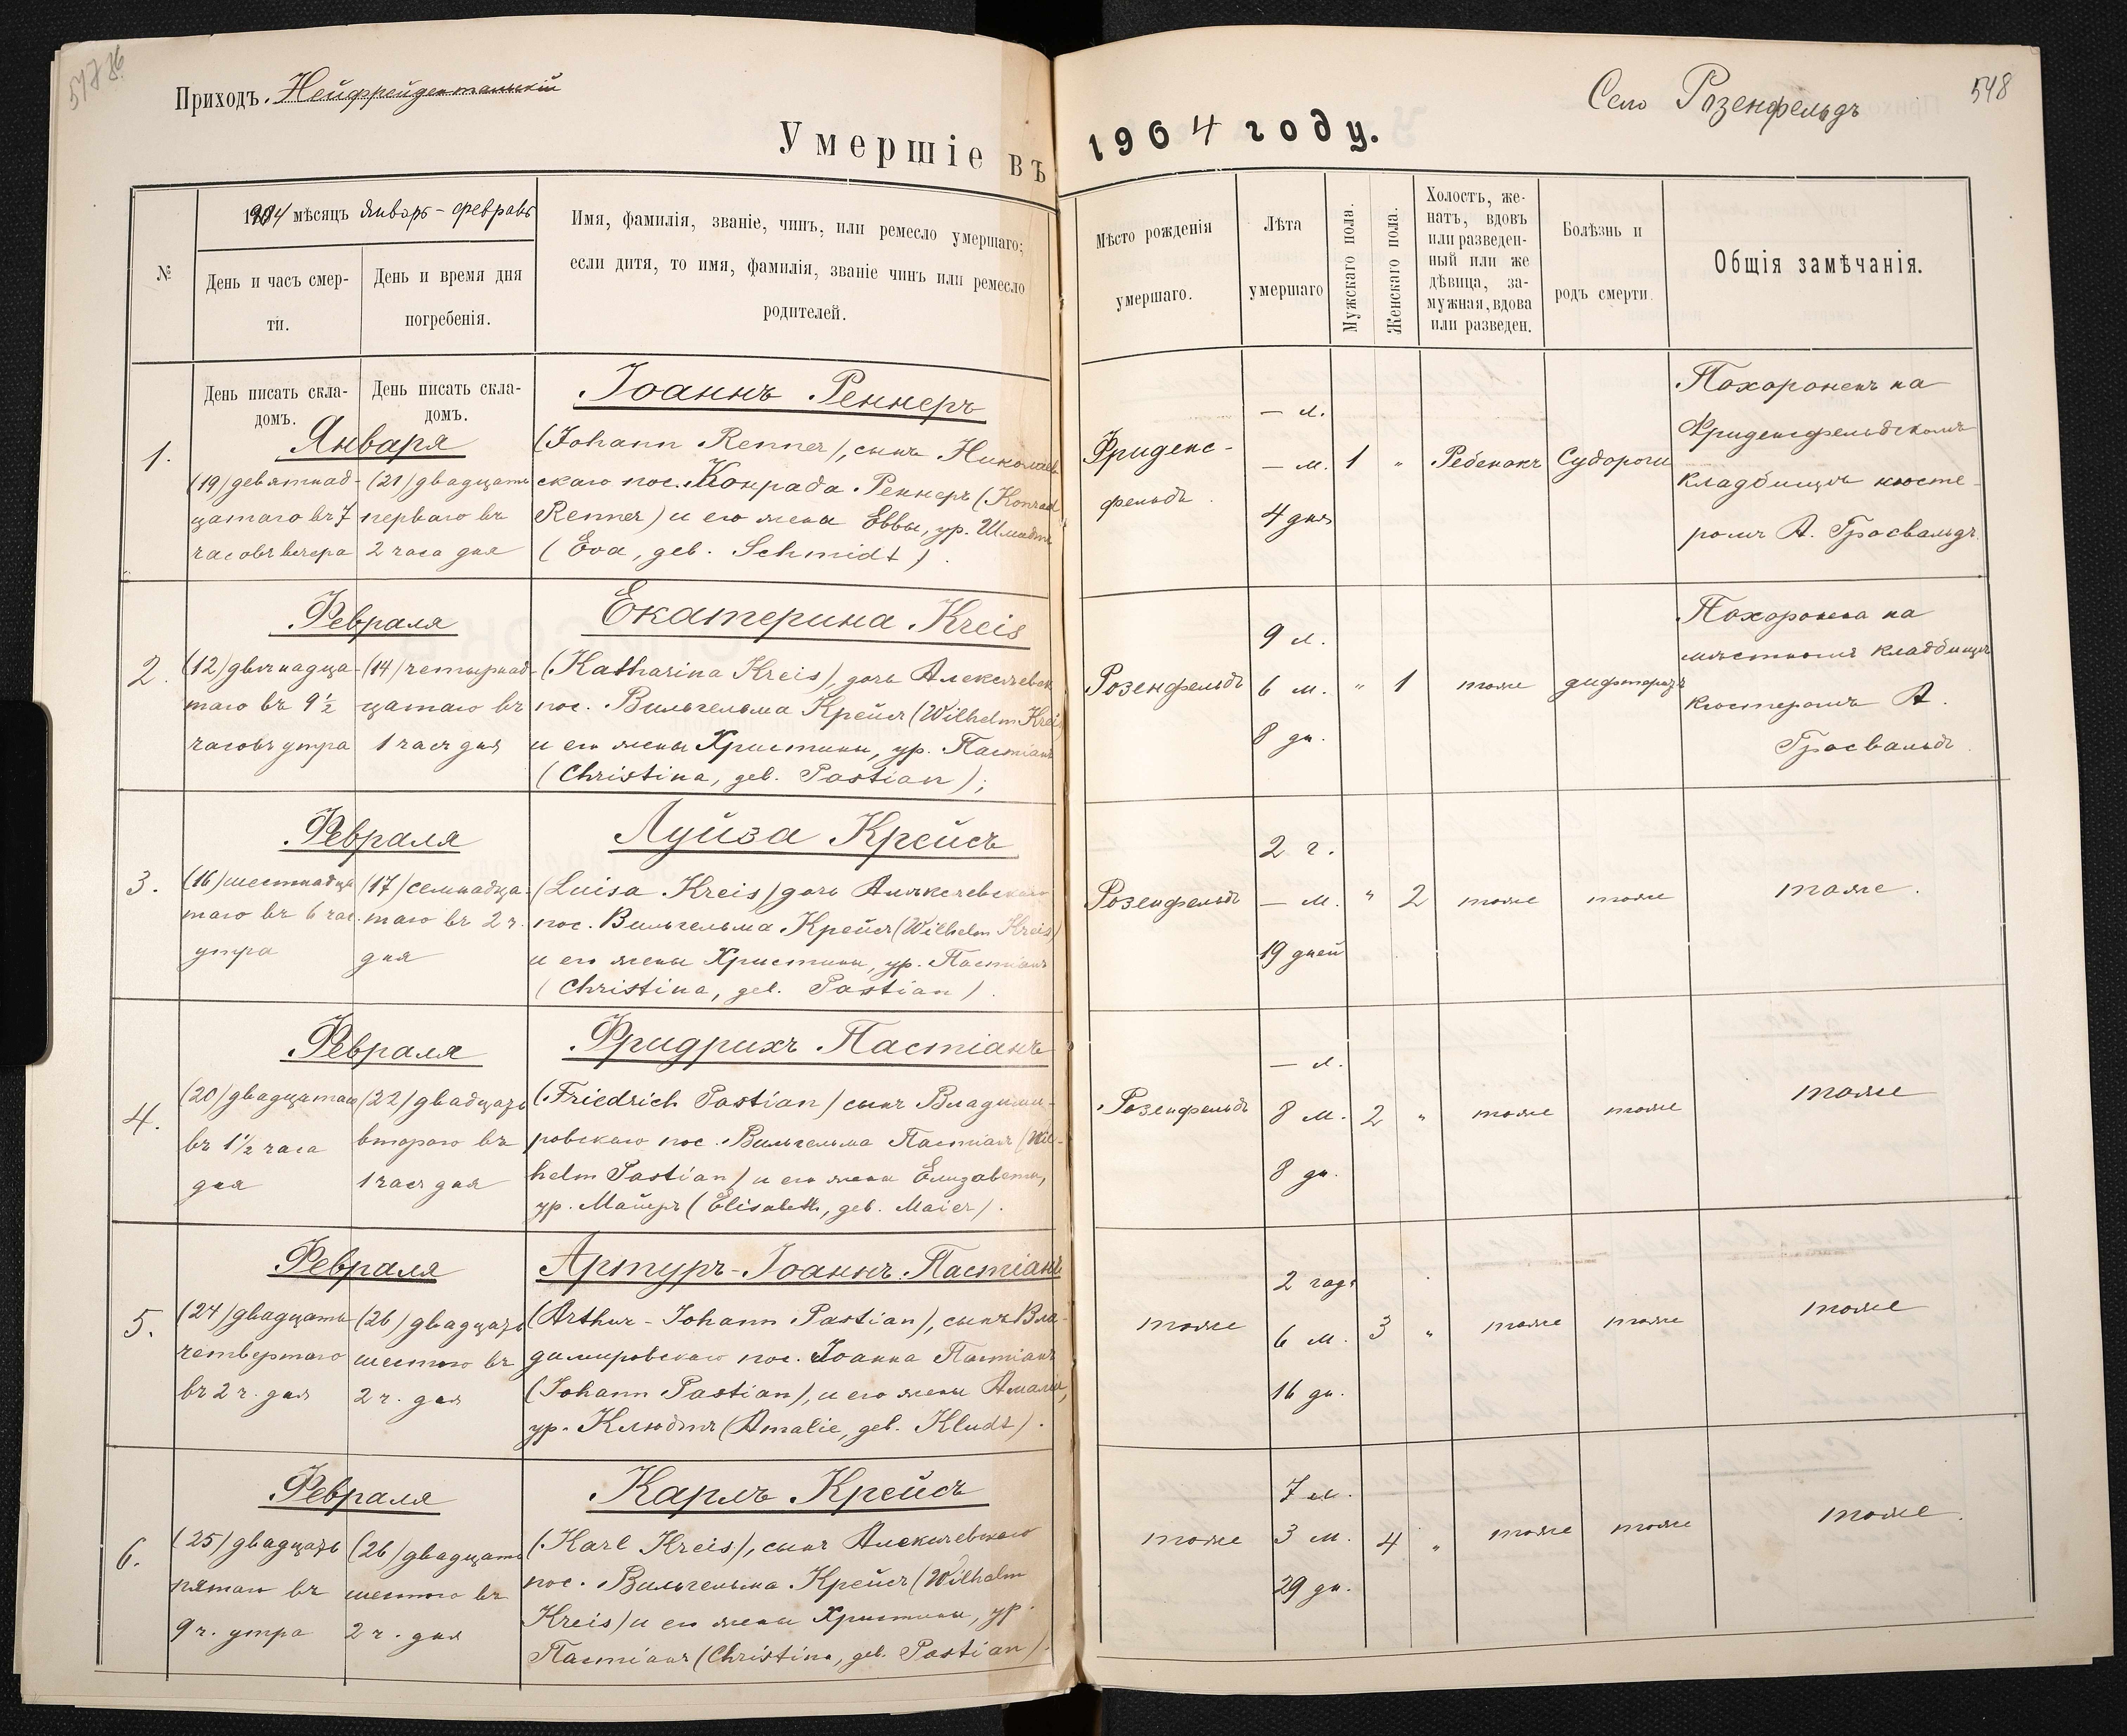 547 36
Приходъ. Нейфрейдентальскій
Село Розенфельдъ
548
Умершіе въ 1904 году.
№
1904 мѣсяцъ Январь - февраль
День и часъ смер-
ти.
День и время дня
погребенія.
Имя, фамилія, званіе, чинъ, или ремесло умершаго;
если дитя, то имя, фамилія, званіе чинъ или ремесло
родителей.
Мѣсто рожденія
умершаго.
Лѣта
умершаго
Мужскаго пола.
Женскаго пола.
Холостъ, же-
натъ, вдовъ
или разведен-
ный или же
дѣвица, за-
мужная, вдова
или разведен.
Болѣзнь и
родъ смерти.
Общія замѣчанія.
День писать скла-
домъ.
День писать скла-
домъ.
1.
Января
(19) девятнад-
цатаго въ 7
часовъ вечера
(21) двадцать
перваго въ
2 часа дня
Іоаннъ Реннеръ
(Johann Renner), сынъ Николаев
скаго пос. Конрада Реннеръ (Konrad
Renner) и его жена Еввы, ур. Шмидтъ
(Eva, geb. Schmidt).
Фриденс-
фельдъ.
— л.
— м.
4 дня
1 "
Ребенокъ
Судороги
Похороненъ на
Фриденсфельдскомъ
кладбищѣ кюсте-
ромъ А. Гросвальдъ.
2.
Февраля
(12) двѣнадца-
таго въ 9 ½
часовъ утра
(14) четырнад-
цатаго въ
1 часъ дня
Екатерина Kreis
(Katharina Kreis), дочь Алексѣевск
пос. Вильгельма Крейсъ (Wilhelm Kreis)
и его жены Христины, ур. Пастіанъ
(Christina, geb. Pastian);
Розенфельдъ
9 л.
6 м.
8 дн.
" 1
тоже
дифтеритъ
Похоронена на
мѣстномъ кладбищѣ
кюстеромъ А.
Гросвальдъ.
3.
Февраля
(16) шестнадца
таго въ 6 час.
утра
(17) семнадца-
таго въ 2 ч.
дня
Луиза Крейсъ
(Luisa Kreis) дочь Алѣксѣевскаго
пос. Вильгельма Крейсъ (Wilhelm Kreis)
и его жены Христины, ур. Пастіанъ
(Christina, geb. Pastian).
Розенфельдъ
2 г.
— м.
19 дней
" 2
тоже
тоже
тоже.
4.
Февраля
(20) двадцатаго
въ 1 ½ часа
дня
(22) двадцать
втораго въ
1 часъ дня
Фридрихъ Пастіанъ
(Friedrich Pastian) сынъ Владими-
ровскаго пос. Вильгельма Пастіанъ (Wil-
helm Pastian) и его жены Елизаветы,
ур. Майеръ (Elisabeth, geb. Maier).
Розенфельдъ
— л.
8 м.
8 дн.
2 "
тоже
тоже
тоже
5.
Февраля
(24) двадцать
четвертаго
въ 2 ч. дня
(26) двадцать
шестого въ
2 ч. дня
Артуръ-Іоаннъ Пастіанъ
(Arthur-Johann Pastian), сынъ Вла-
димировскаго пос. Іоанна Пастіанъ
(Johann Pastian), и его жены Амаліи,
ур. Клюдтъ (Amalie, geb. Kludt).
тоже
2 года
6 м.
16 дн.
3 "
тоже
тоже
тоже
6.
Февраля
(25) двадцать
пятаго въ
9 ч. утра
(26) двадцать
шестого въ
2 ч. дня
Карлъ Крейсъ
(Karl Kreis), сынъ Алексѣевскаго
пос. Вильгельма Крейсъ (Wilhelm
Kreis) и его жены Христины, ур.
Пастіанъ (Christina, geb. Pastian).
тоже
7 л.
3 м.
29 дн.
4 "
тоже
тоже
тоже.